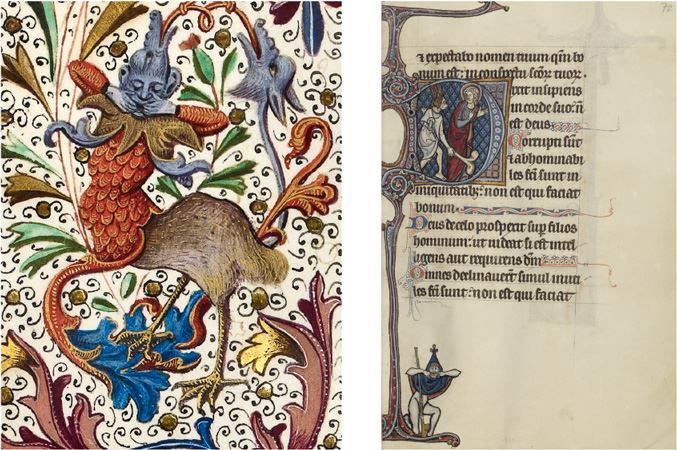 72
⁊ expectabo nomen tuum qm̄ bo
num est: in conspectu scōr tuor.
Dixit insipiens
in corde suo: n̄
est deus
Corrupti sūt
⁊ abhominabi
les fc̄i sunt in
iniquitatibꝫ: non est qui faciat
bonum.
Deus de celo prospexit sup̄ filios
hominum: ut uideat si est intel
ligens aut requirens dm̄
Omnes declinauer̄t simul inuti
les fc̄i sunt: non est qui faciat